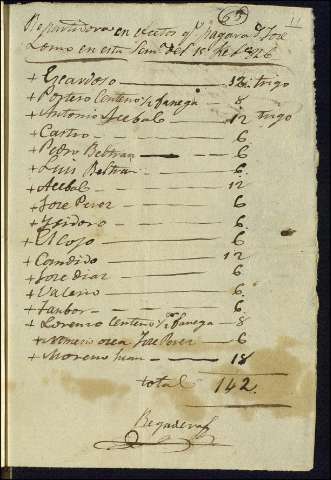 (65) 11
en efectos q.e pagara D.n Jose
Lomo en esta Sem.a del 15 de
+ Escardoso — 12. trigo
+ Portero Centeno ½ fanega — 8
+ Antonio Acebalo — 12 trigo
+ Castro — 6
+ Pedro Beltran — 6
+ Luis Beltran — 6.
+ Acebal — 12
+ Jose Perez — 6
+ Ysidoro — 6.
+ El Cojo — 6
+ Candido — 12
+ Jose Diaz — 6.
+ Valerio — 6.
+ Tambor — 6.
+ Lorenzo Centeno ½ fanega — 8
+ Jose Perez — 6
+ Moreno Juan — 18
total 142.